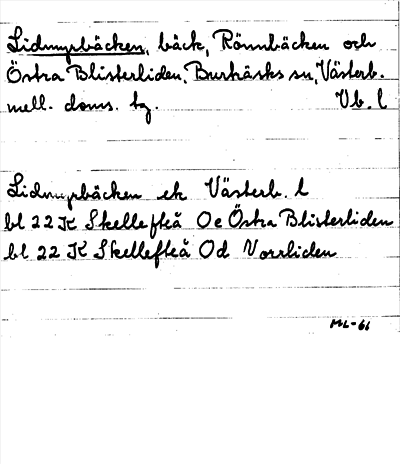 Lidmyrbäcken, bäck, Rönnbäcken och
Östra Blisterliden, Burträsks sn, Västerb.
mell. doms. tg. Vb. l
Lidmyrbäcken ek Västerb. l
bl 22 K Skellefteå Oe Östra Blisterliden
bl 22 K Skellefteå Od Vorrliden
ML-66